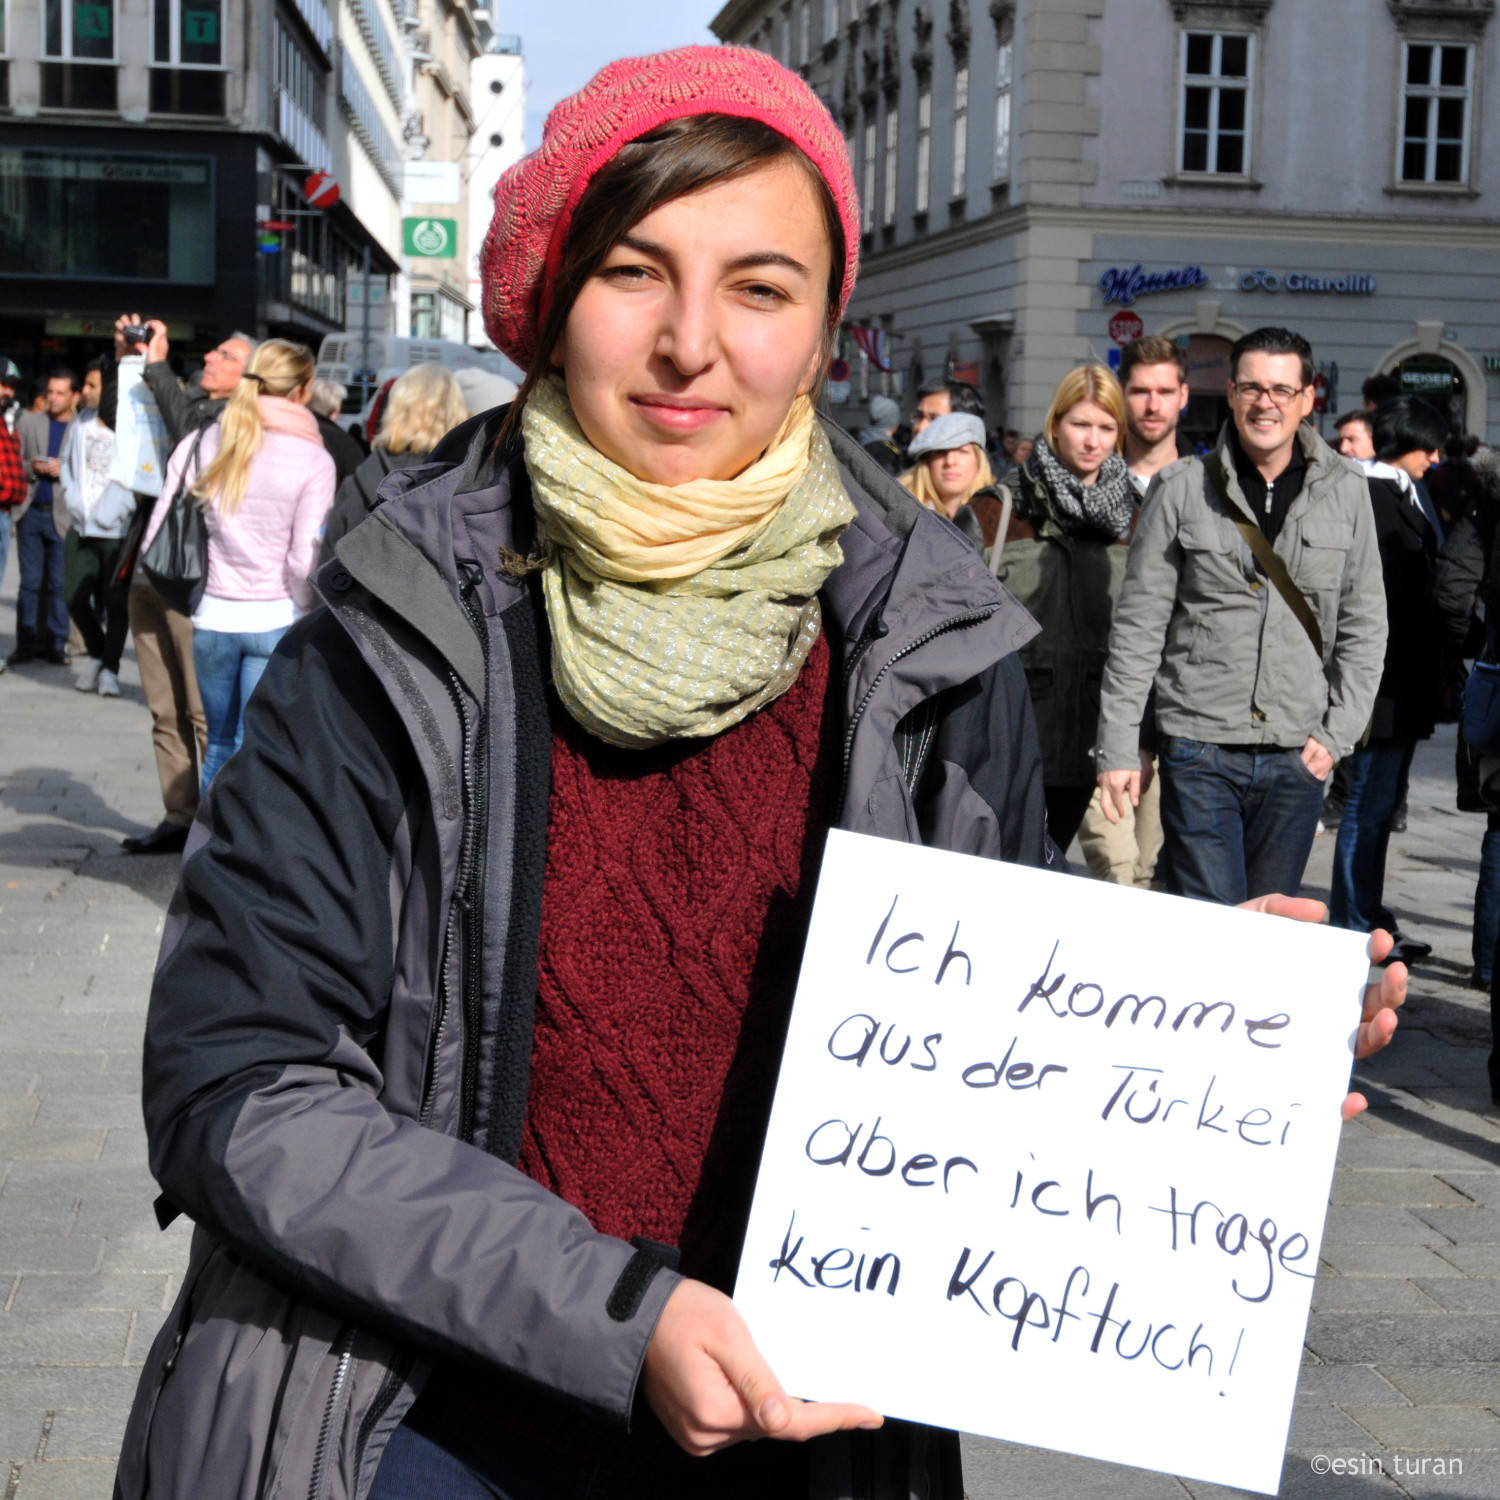 A
T
Bank Austria
Manner
Giarolli
STOP
GEIGER
Ich komme
aus der Türkei
aber ich trage
kein Kopftuch!
©esin turan